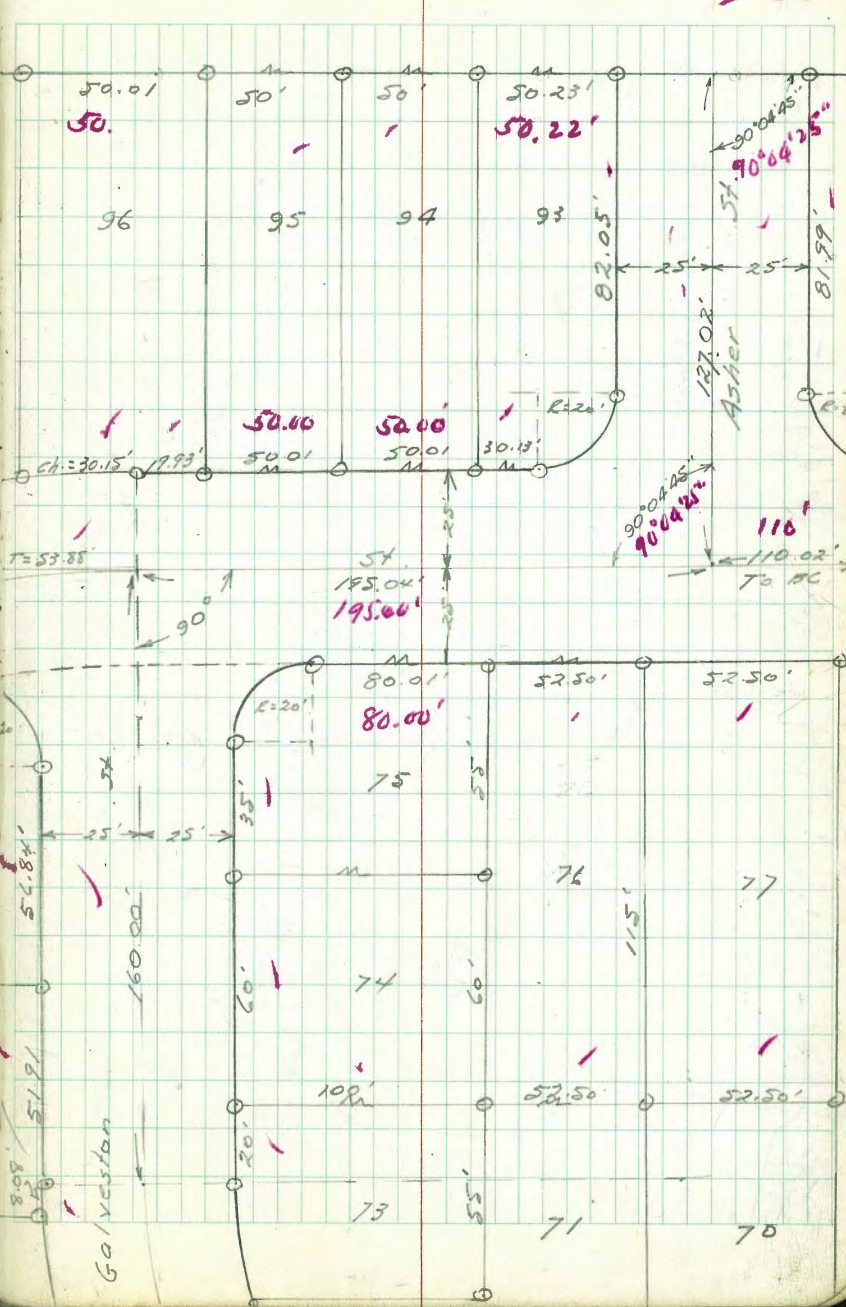 50.01' 50' 50' 50.23'
50. 50.22'
90°04'45"
90°04'25"
96 95 94 93
82.05'
St.
81.99'
25' 25'
127.02'
Asher
R=20'
50.00 50.00'
Ch.=30.15' 19.93' 50.01 50.01 30.13'
25'
90°04'45"
90°04'25"
110'
T=53.88' St 110.02'
195.04' To BC
195.00'
90°
25'
80.01' 52.50' 52.50'
R=20'
80.00'
St
75
55'
35'
25' 25'
56.84'
76 77
160.00'
115'
74
60' 60'
51.91
100' 52.50 52.50'
20'
8.08'
Galveston
73
55'
71 70